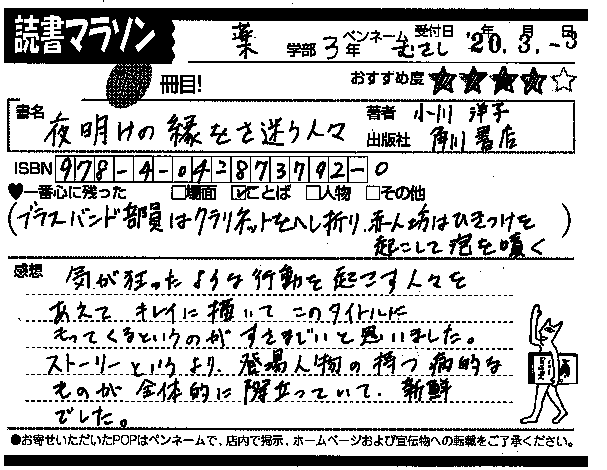 読書マラソン
薬 学部 3年 ペンネーム むさし 受付日 '20.3.-3 年 月 日
冊目!
おすすめ度 ★★★★☆
書名 夜明けの縁をさ迷う人々
著者 小川 洋子
出版社 角川書店
ISBN 978-4-04-873792-0
♥一番心に残った □場面 ☑ことば □人物 □その他
(ブラスバンド部員はクラリネットをへし折り、赤ん坊はひきつけを
起こして泡を噴く)
感想 気が狂ったような行動を起こす人々を
あえて キレイに描いて このタイトルに
もってくるというのが すさまじいと思いました。
ストーリーというより、登場人物の持つ病的な
ものが 全体的に際立っていて、新鮮
でした。
●お寄せいただいたPOPはペンネームで、店内で掲示、ホームページおよび宣伝物への転載をご了承ください。